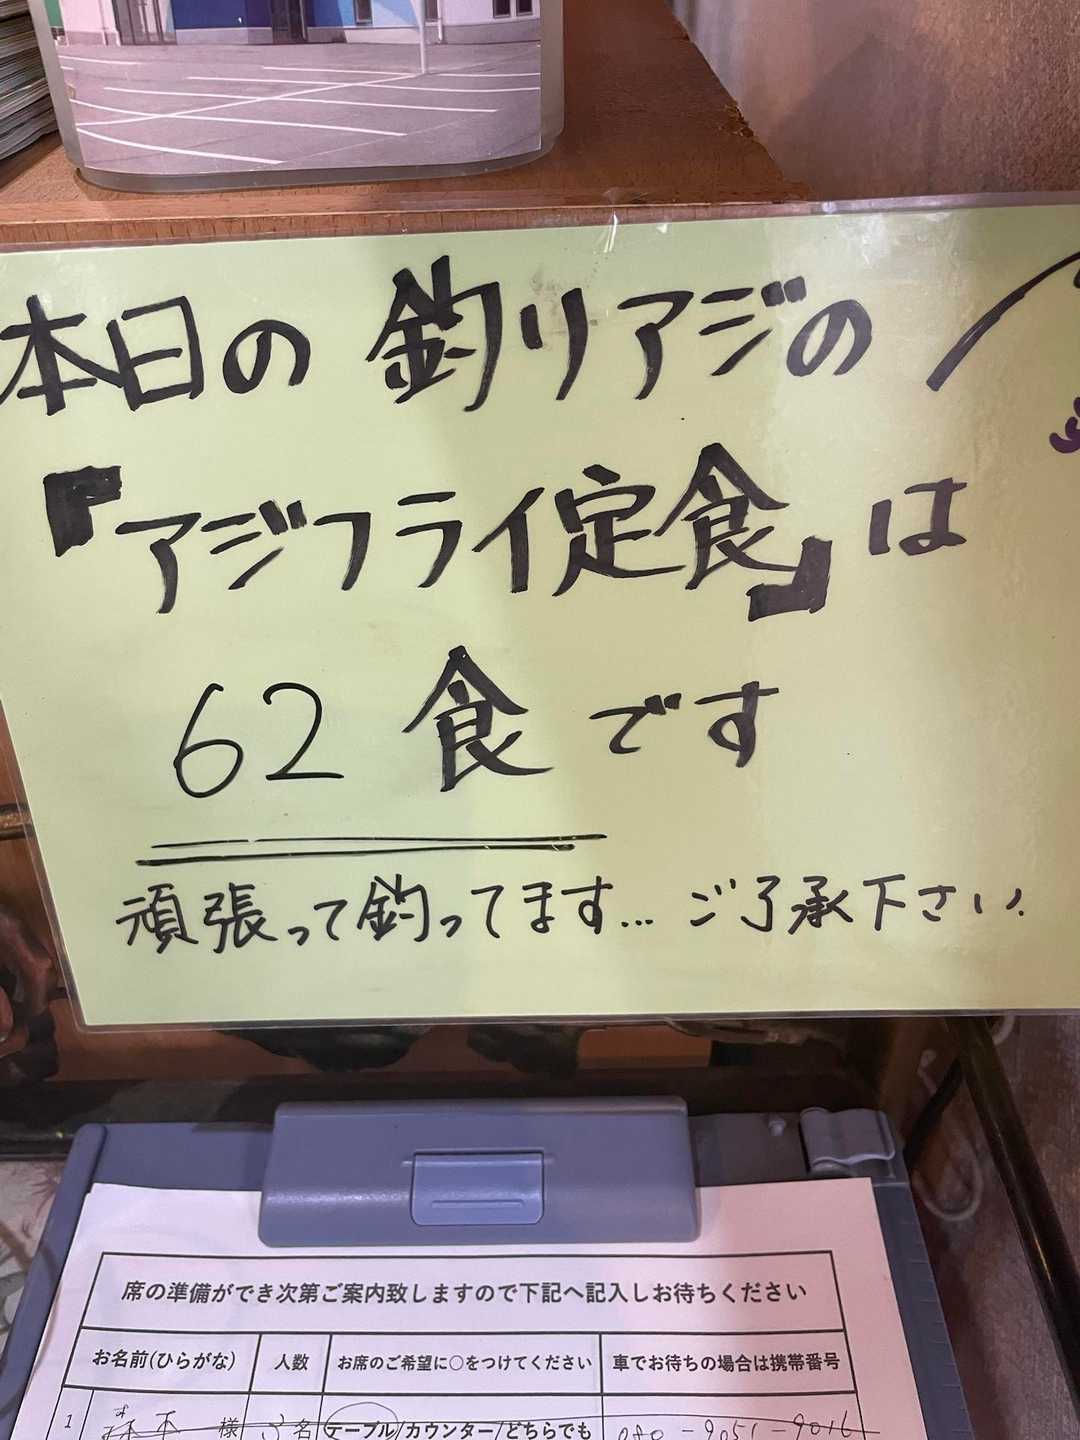 本日の 釣りアジの
『アジフライ定食』は
62 食です
頑張って釣ってます… ご了承下さい.
席の準備ができ次第ご案内致しますので下記へ記入しお待ちください
お名前(ひらがな) 人数 お席のご希望に○をつけてください 車でお待ちの場合は携帯番号
1 様 3名 テーブル/カウンター/どちらでも 080-9051-9016